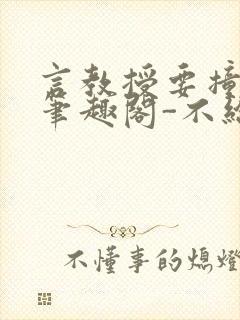 言教授要撞
笔趣阁-不
不懂事的熄燈